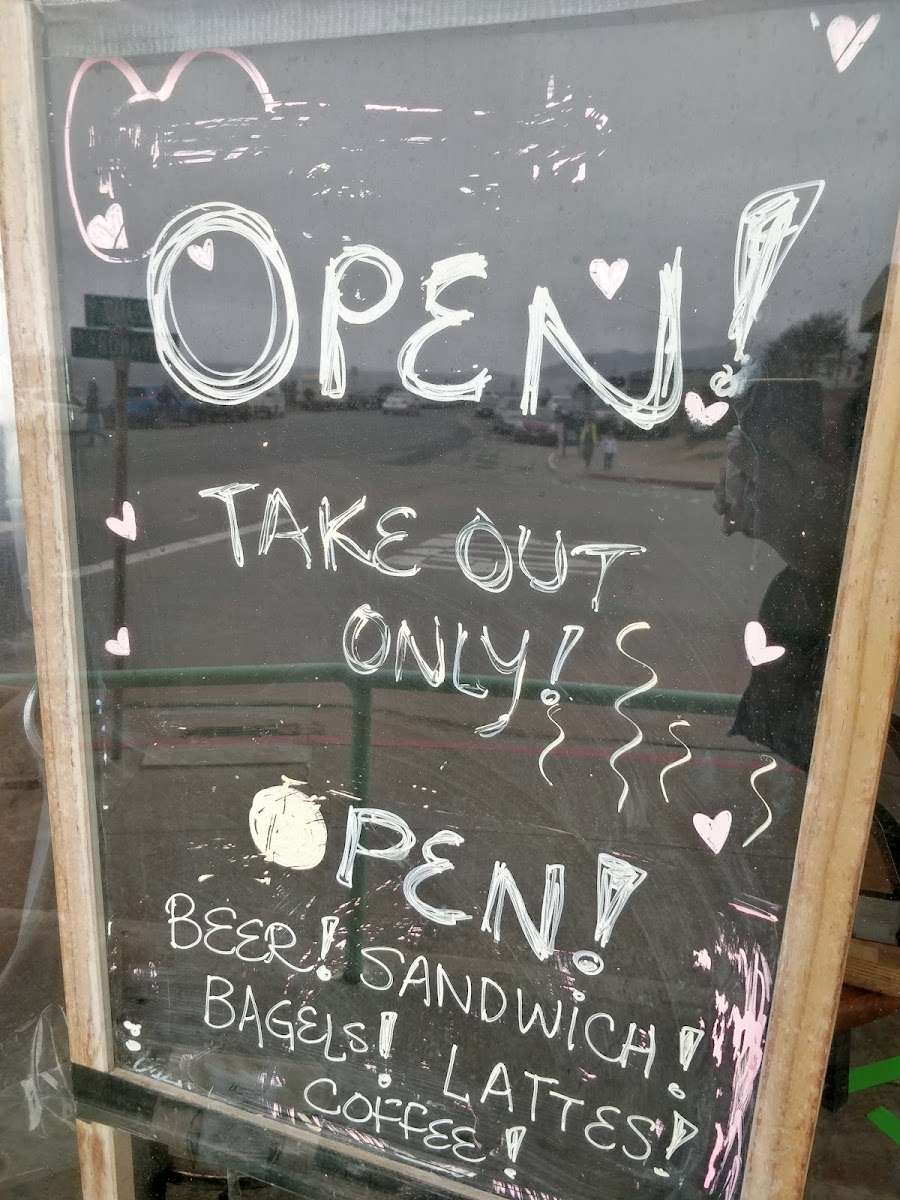 OPEN!
TAKE OUT
ONLY!
OPEN!
BEER! SANDWICH!
BAGELS! LATTES!
COFFEE!